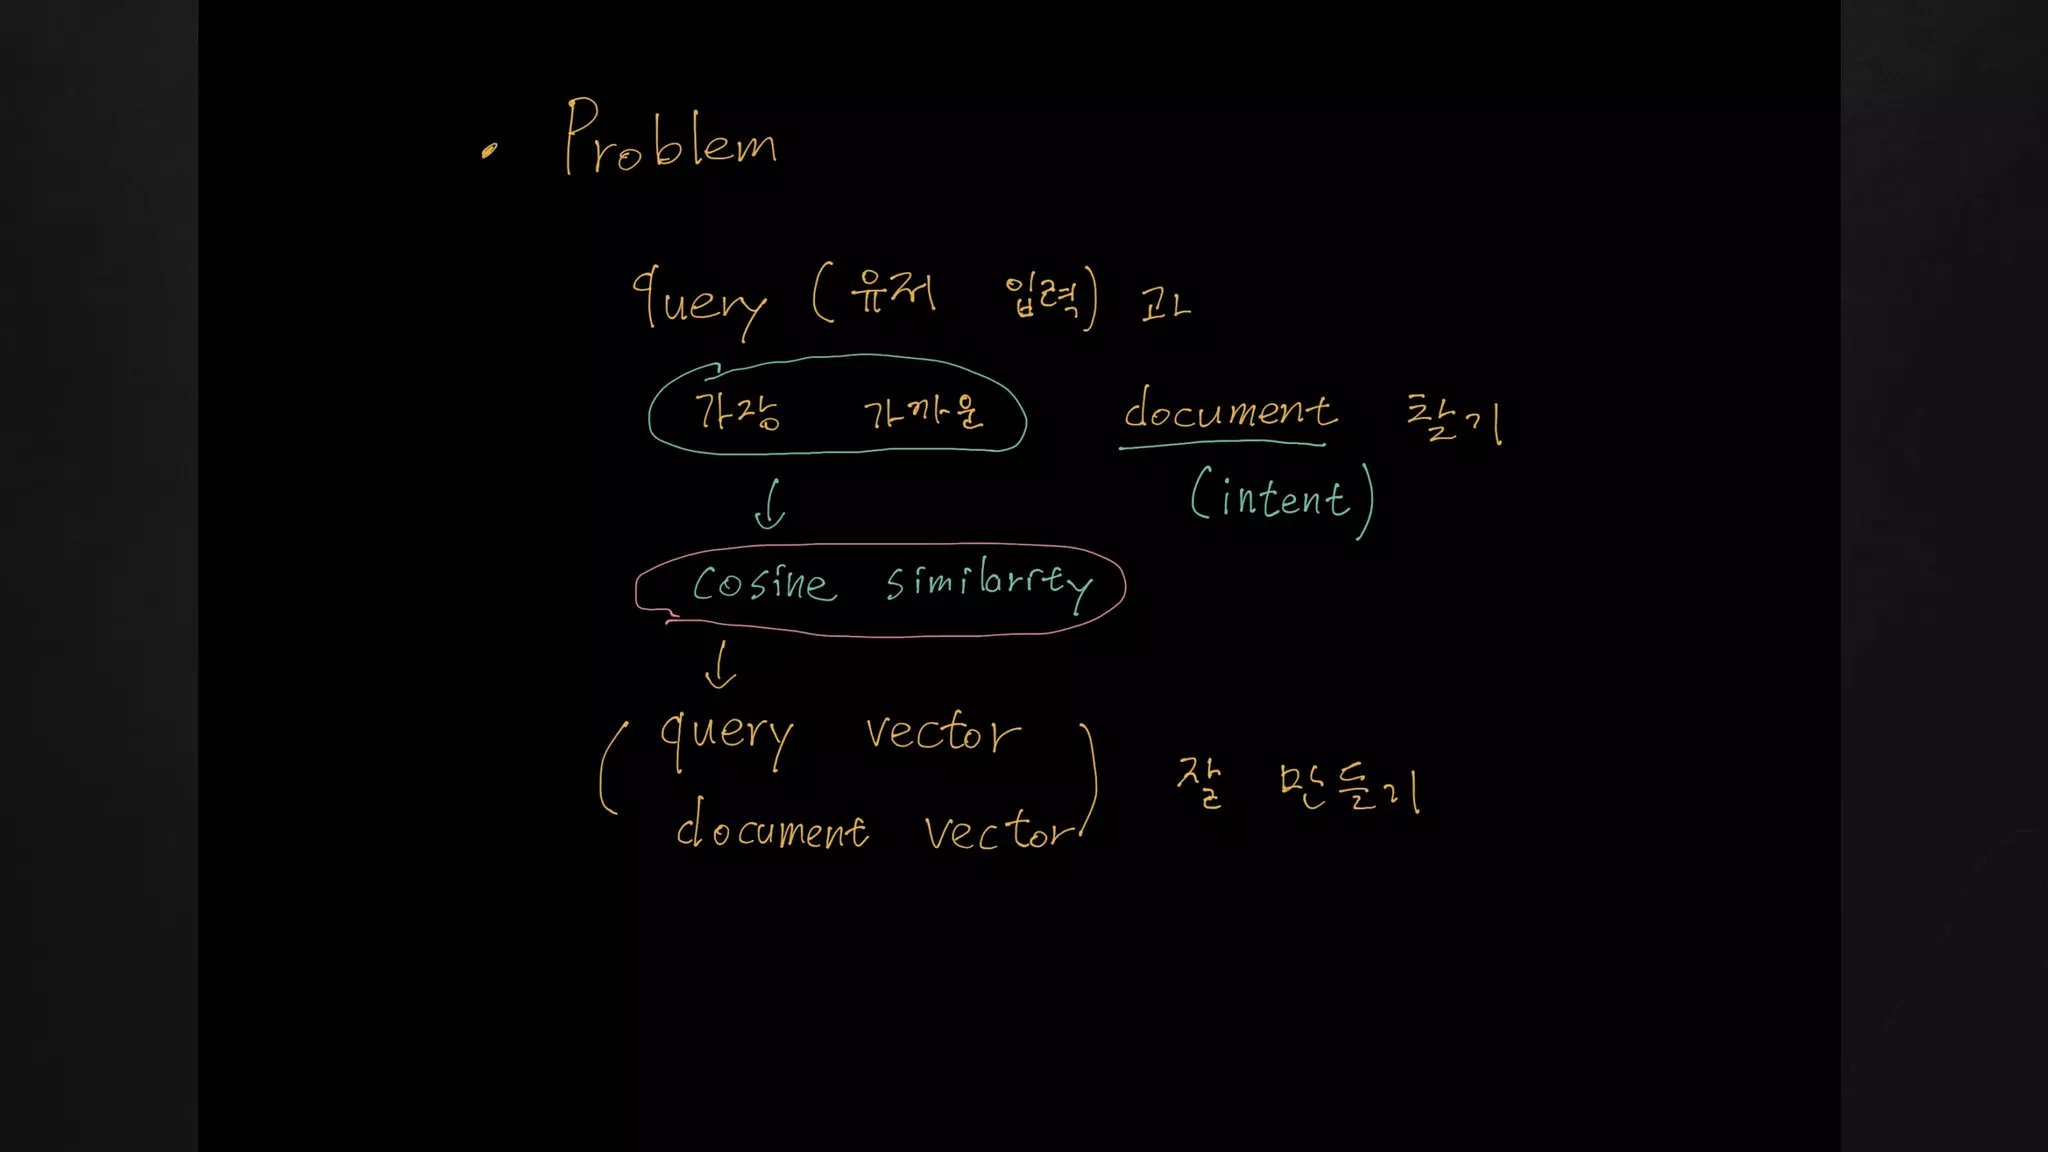 • Problem
query (유저 입력) 과
가장 가까운 document 찾기
(intent)
↓
cosine similarity
↓
( query vector
document vector ) 잘 만들기